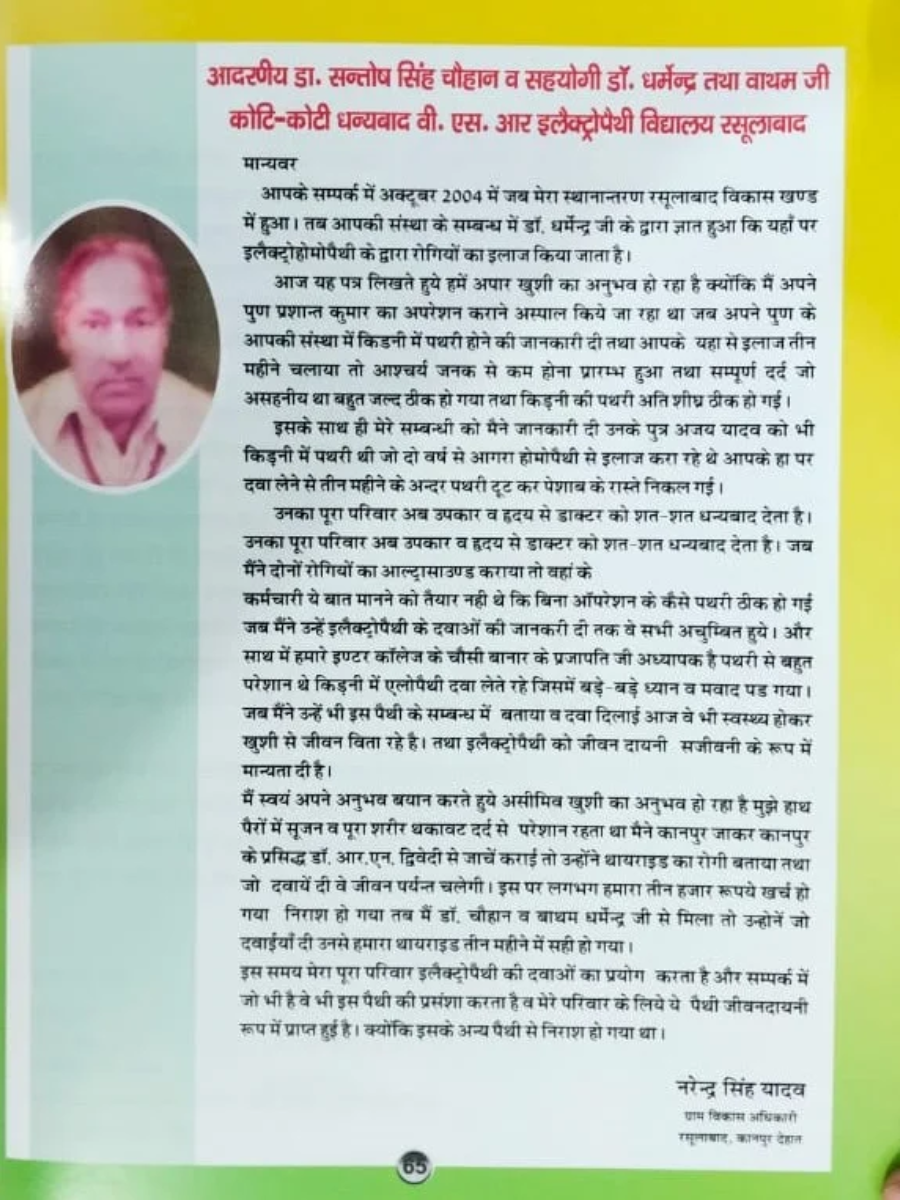 आदरणीय डा. सन्तोष सिंह चौहान व सहयोगी डॉ. धर्मेन्द्र तथा वाथम जी
कोटि-कोटी धन्यबाद वी. एस. आर इलैक्ट्रोपैथी विद्यालय रसूलाबाद
मान्यवर
आपके सम्पर्क में अक्टूबर 2004 में जब मेरा स्थानान्तरण रसूलाबाद विकास खण्ड
में हुआ। तब आपकी संस्था के सम्बन्ध में डॉ. धर्मेन्द्र जी के द्वारा ज्ञात हुआ कि यहाँ पर
इलैक्ट्रोहोमोपैथी के द्वारा रोगियों का इलाज किया जाता है।
आज यह पत्र लिखते हुये हमें अपार खुशी का अनुभव हो रहा है क्योंकि मैं अपने
पुण प्रशान्त कुमार का अपरेशन कराने अस्पाल किये जा रहा था जब अपने पुण के
आपकी संस्था में किडनी में पथरी होने की जानकारी दी तथा आपके यहा से इलाज तीन
महीने चलाया तो आश्चर्य जनक से कम होना प्रारम्भ हुआ तथा सम्पूर्ण दर्द जो
असहनीय था बहुत जल्द ठीक हो गया तथा किड़नी की पथरी अति शीघ्र ठीक हो गई।
इसके साथ ही मेरे सम्बन्धी को मैने जानकारी दी उनके पुत्र अजय यादव को भी
किड़नी में पथरी थी जो दो वर्ष से आगरा होमोपैथी से इलाज करा रहे थे आपके हा पर
दवा लेने से तीन महीने के अन्दर पथरी टूट कर पेशाब के रास्ते निकल गई।
उनका पूरा परिवार अब उपकार व हृदय से डाक्टर को शत-शत धन्यबाद देता है।
उनका पूरा परिवार अब उपकार व हृदय से डाक्टर को शत-शत धन्यबाद देता है। जब
मैंने दोनों रोगियों का आल्ट्रासाउण्ड कराया तो वहां के
कर्मचारी ये बात मानने को तैयार नही थे कि बिना ऑपरेशन के कैसे पथरी ठीक हो गई
जब मैंने उन्हें इलैक्ट्रोपैथी के दवाओं की जानकरी दी तक वे सभी अचुम्बित हुये। और
साथ में हमारे इण्टर कॉलेज के चौसी बानार के प्रजापति जी अध्यापक है पथरी से बहुत
परेशान थे किड़नी में एलोपैथी दवा लेते रहे जिसमें बड़े-बड़े ध्यान व मवाद पड गया।
जब मैंने उन्हें भी इस पैथी के सम्बन्ध में बताया व दवा दिलाई आज वे भी स्वस्थ्य होकर
खुशी से जीवन विता रहे है। तथा इलैक्ट्रोपैथी को जीवन दायनी सजीवनी के रूप में
मान्यता दी है।
मैं स्वयं अपने अनुभव बयान करते हुये असीमिव खुशी का अनुभव हो रहा है मुझे हाथ
पैरों में सूजन व पूरा शरीर थकावट दर्द से परेशान रहता था मैने कानपुर जाकर कानपुर
के प्रसिद्ध डॉ. आर.एन. द्विवेदी से जाचें कराई तो उन्होंने थायराइड का रोगी बताया तथा
जो दवायें दी वे जीवन पर्यन्त चलेगी। इस पर लगभग हमारा तीन हजार रूपये खर्च हो
गया निराश हो गया तब मैं डॉ. चौहान व बाथम धर्मेन्द्र जी से मिला तो उन्होनें जो
दवाईयाँ दी उनसे हमारा थायराइड तीन महीने में सही हो गया।
इस समय मेरा पूरा परिवार इलैक्ट्रोपैथी की दवाओं का प्रयोग करता है और सम्पर्क में
जो भी है वे भी इस पैथी की प्रसंशा करता है व मेरे परिवार के लिये ये पैथी जीवनदायनी
रूप में प्राप्त हुई है। क्योंकि इसके अन्य पैथी से निराश हो गया था।
नरेन्द्र सिंह यादव
ग्राम विकास अधिकारी
रसूलाबाद, कानपुर देहात
65